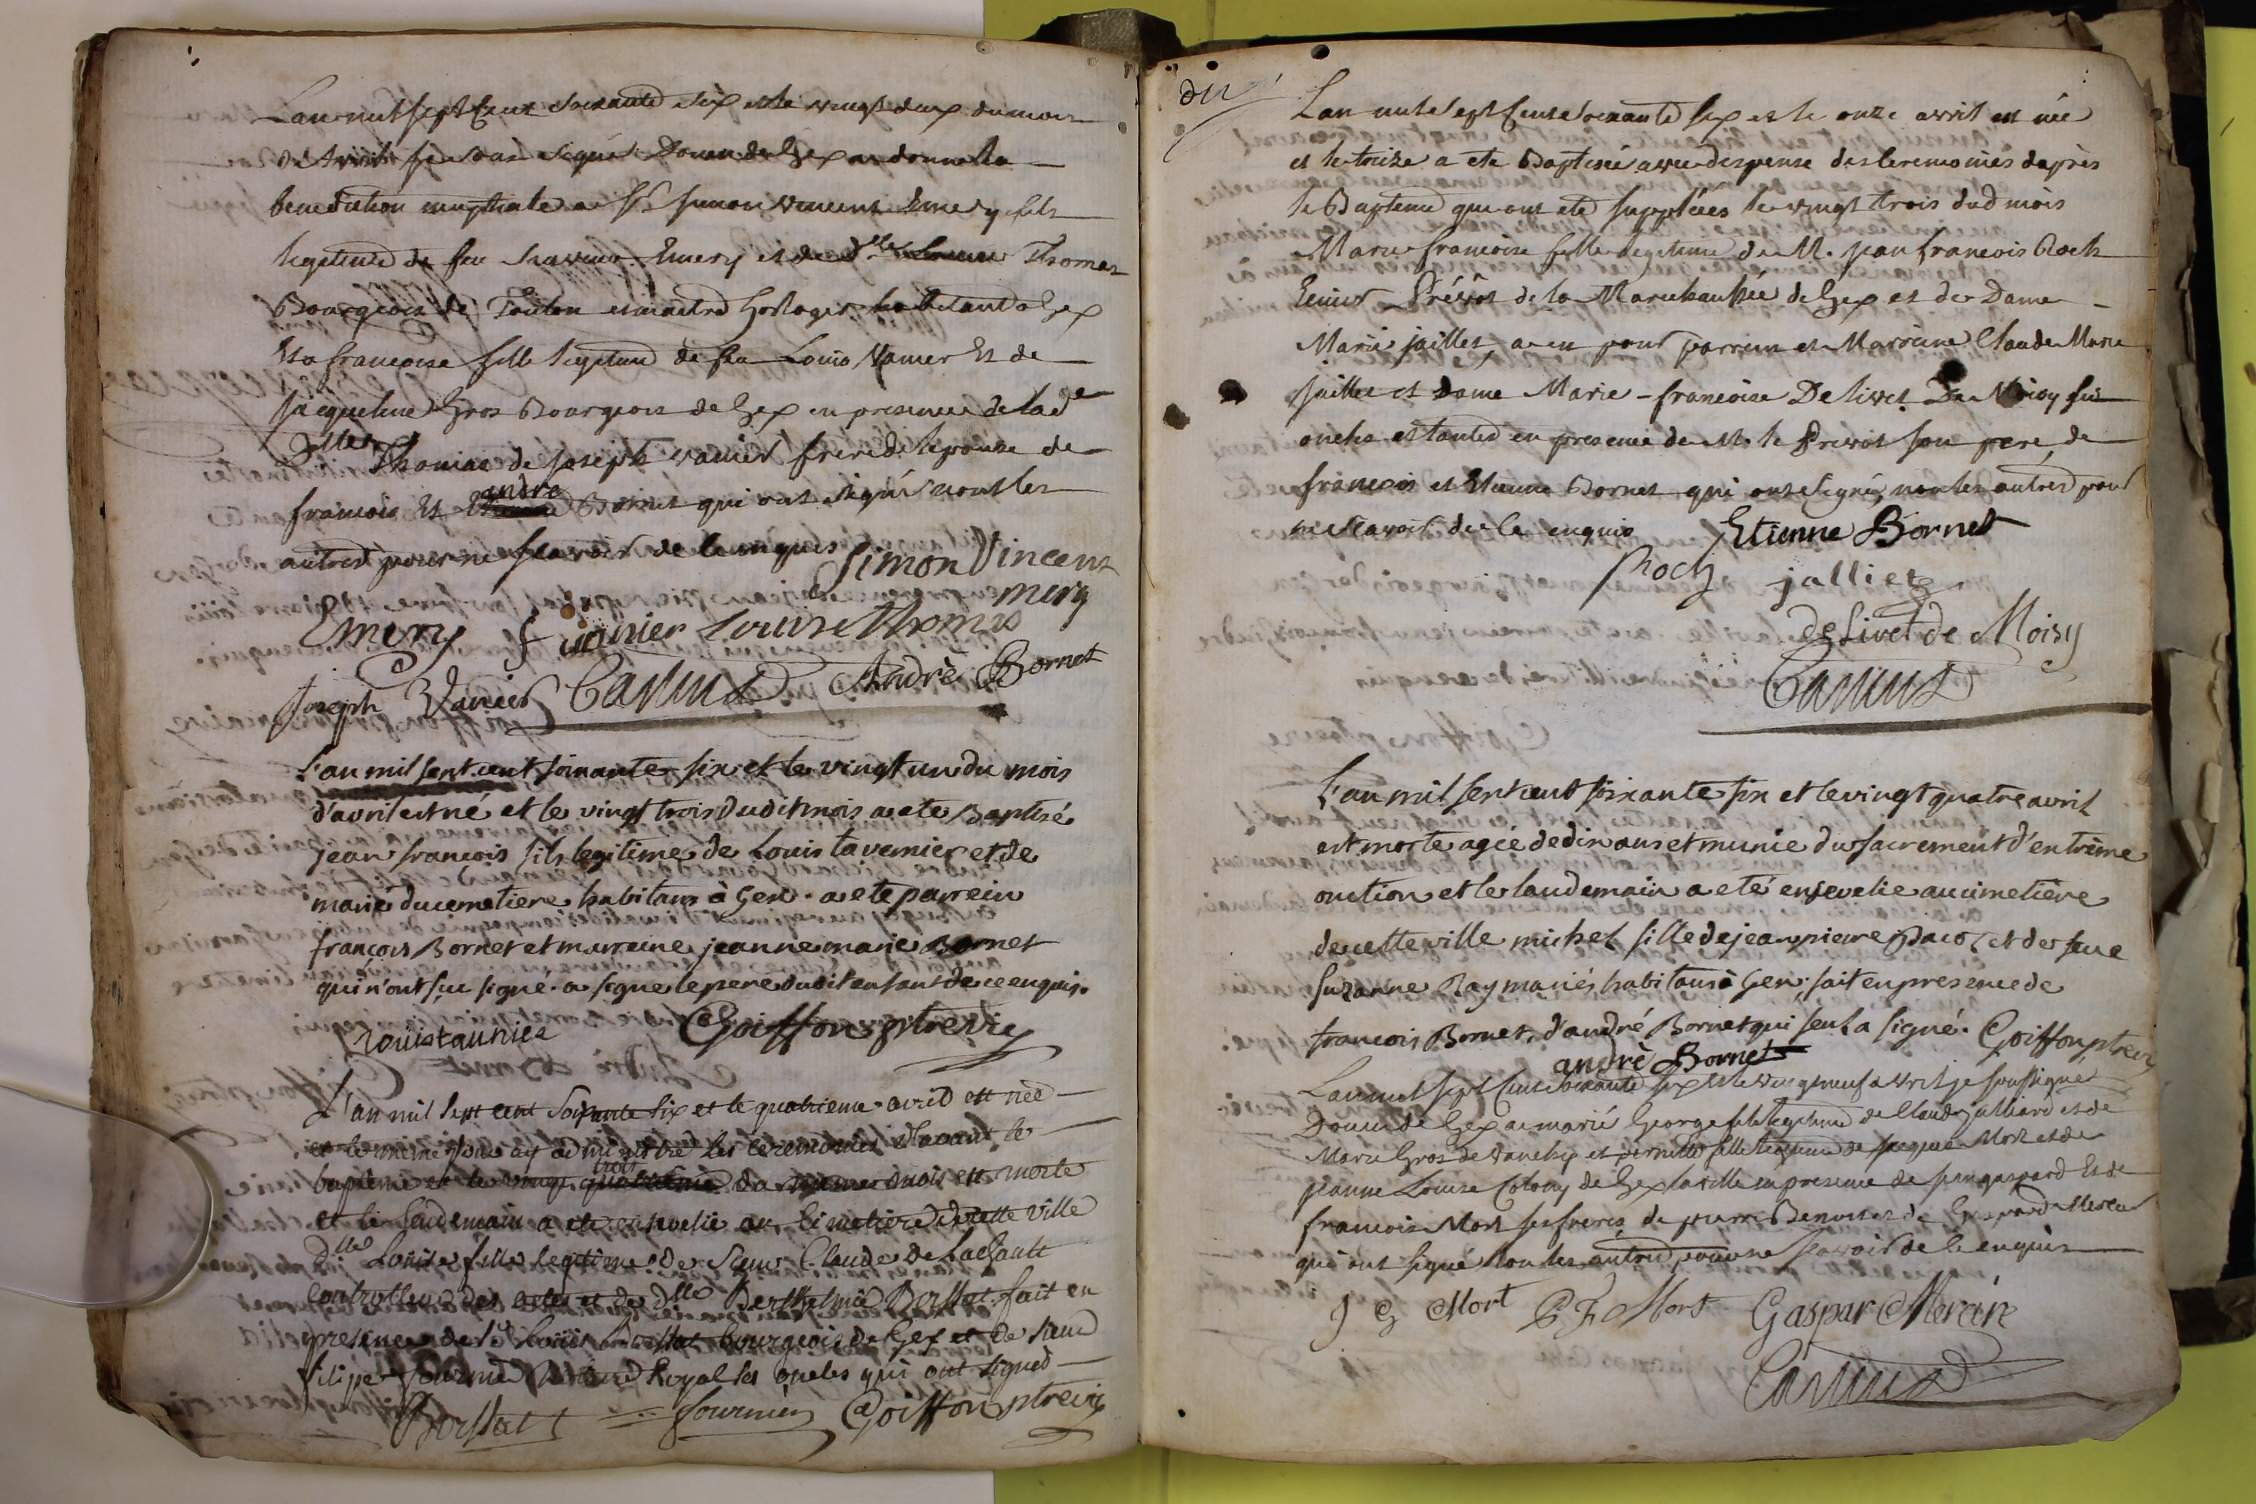 Lan mil sept cent soixante six et le vingt deux du mois
de Avril je sous signé Doyen de Gex ai donné la
benediction nuptiale a Sr Simon Vincent Emery fils
legitime de feu Emery et de dlle Louise Thomas
Bourgeois de Toulon et maitre horloger habitant a Gex
Et a francoise fille legitime de feu Louis Vanier Et de
jacqueline Gros Bourgeois de Gex en presence de lade
dlle Thomas de Joseph vanier frere de lepouse de
francois Et andre Bornet qui ont signé non les
autres pour ne scavoir de ce enquis Simon Vincent
Emery f vanier Louise Thomas mery
Joseph Vanier Castin André Bornet
L'an mil sept cent soixante six et le vingt un du mois
d'avril est né et le vingt trois dudit mois a ete Baptisé
jean francois fils legitime de Louis tavernier et de
marie ducemetiere habitans à Gex. a ete parrein
françois Bornet et marreine jeanne marie Bornet
qui n'ont sçu signé. a signe le pere dudit enfant de ce enquis.
Goiffon ptre vic
L'an mil sept cent soixante six et le quatrieme avril est née
et le meme jour ay administré les ceremonies d'avant le
baptême et le vingt trois du mois est morte
et le lendemain a ete ensevelie au Cimetiere de cette ville
Dlle Louise fille legitime de Sieur Claude de Lachault
Controlleur des actes et de dlle Berthelmie Borssat. fait en
presence de Sr Louis Borssat bourgeois de Gex et de sieur
filippe fournier Notaire Royal ses oncles qui ont signed
Borssat fournier Goiffon ptre vic
Lan mil sept cent soixante six et le onze avril est née
et le treize a ete Baptisée avec dispense des ceremonies daprès
le Bapteme qui ont eté supplées le vingt trois dud mois
Marie francoise fille legitime de M. jean francois Roch
Ecuier Prévôt de la Marechaussée de Gex et de Dame
Marie jaillet, a eu pour parrein et Marreine Claude Marie
jaillet et Dame Marie-francoise De livet De Moisy ses
oncles et tantes en presence de M. le Prevot son pere, de
francois et Etienne Bornet qui ont signé, non les autres pour
ne scavoir de ce enquis Etienne Bornet
Roch jalliet
de Livet de Moisy
Castin
L'an mil sept cent soixante six et le vingt quatre avril
est morte agée de dix ans et munie du sacrement d'extrême
onction et le landemain a eté ensevelie au cimetière
de cette ville michel fille de jean pierre et de feue
Suzanne Ray mariés habitans à Gex; fait en presence de
francois Bornet, d'andré Bornet qui seul a signé. Goiffon ptre vic
andrè Bornet
Lan mil sept cent soixante six et le vingt neuf avril je soussigné
Doyen de Gex ai marié George fils legitime de Claude jalliard et de
Marie Gros de et pernette fille legitime de jacque Mort et de
jeanne Louise Colony de Gex la ville en presence de jean gaspard Et de
francois Mort ses freres, de pierre et de Gaspard Mercier
qui ont signé non les autres pour ne scavoir de ce enquis
J G Mort P F Mort Gaspar Mercire
Castin